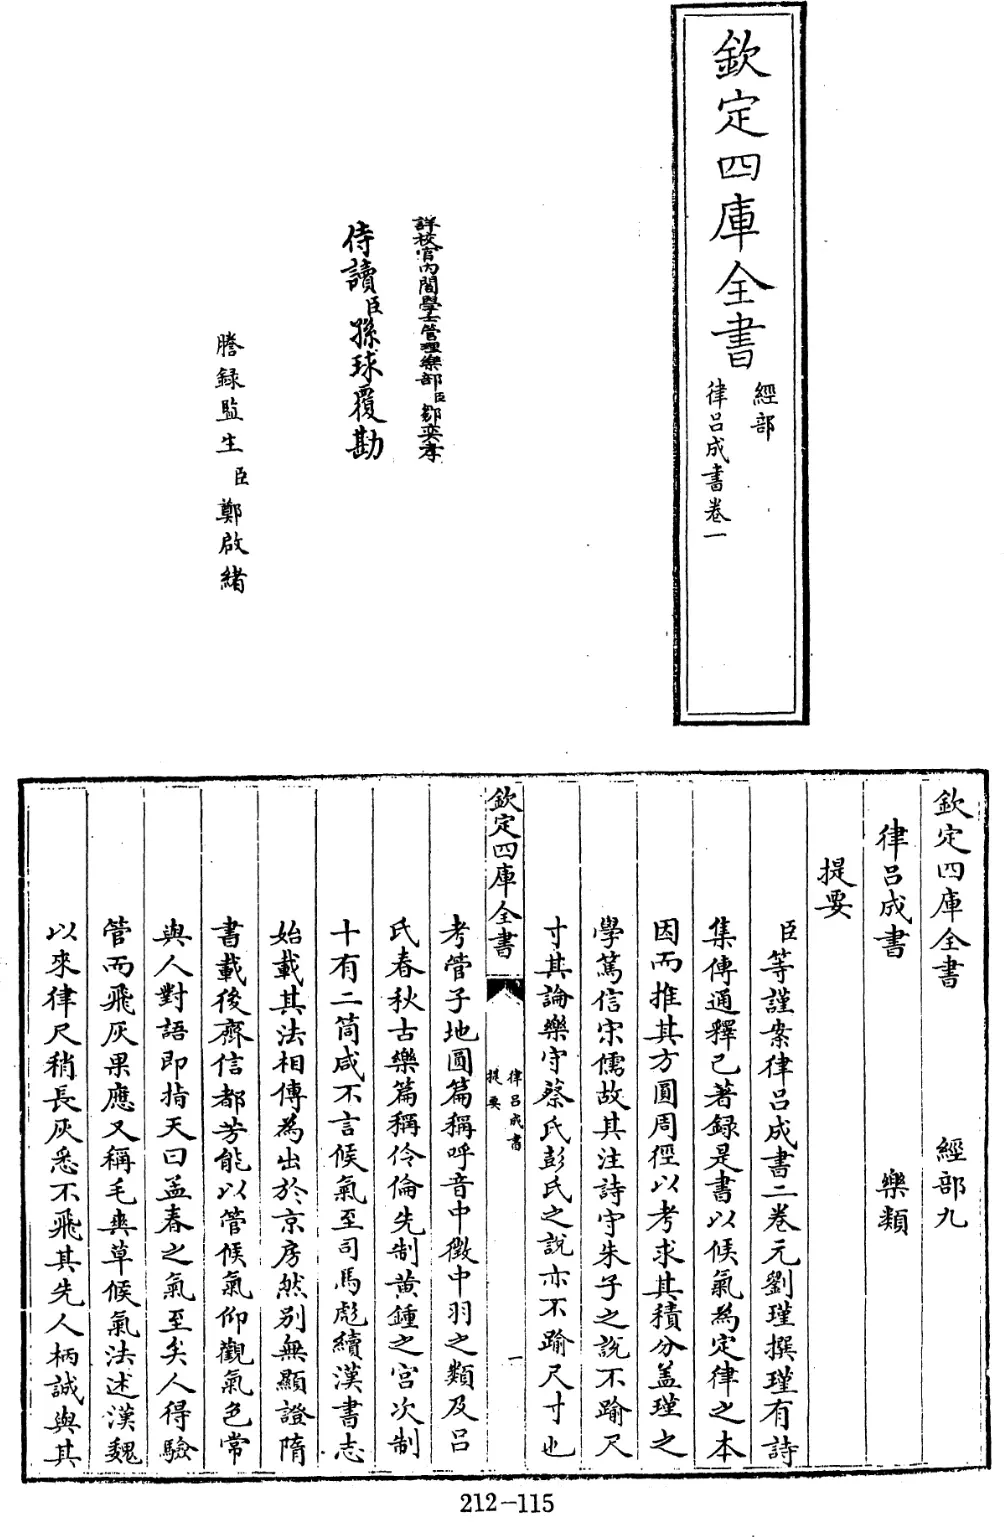 欽定四庫全書
經部
律呂成書卷一
詳校官內閣學士管理樂部臣鄒奕孝
侍讀臣孫球覆勘
謄録監生臣鄭啟緒
欽定四庫全書 經部九
律呂成書 樂類
提要
臣等謹案律呂成書二卷元劉瑾撰瑾有詩
集傳通釋已著録是書以候氣為定律之本
因而推其方圓周徑以考求其積分盖瑾之
學篤信宋儒故其注詩守朱子之說不踰尺
寸其論樂守蔡氏彭氏之說亦不踰尺寸也
欽定四庫全書 律呂成書 提要 一
考管子地圓篇稱呼音中徵中羽之類及呂
氏春秋古樂篇稱伶倫先制黃鍾之宮次制
十有二筒咸不言候氣至司馬彪續漢書志
始載其法相傳為出於京房然别無顯證隋
書載後齊信都芳能以管候氣仰觀氣色常
與人對語即指天曰孟春之氣至矣人得驗
管而飛灰果應又稱毛爽草候氣法述漢魏
以來律尺稍長灰悉不飛其先人柄誠與其
212-115